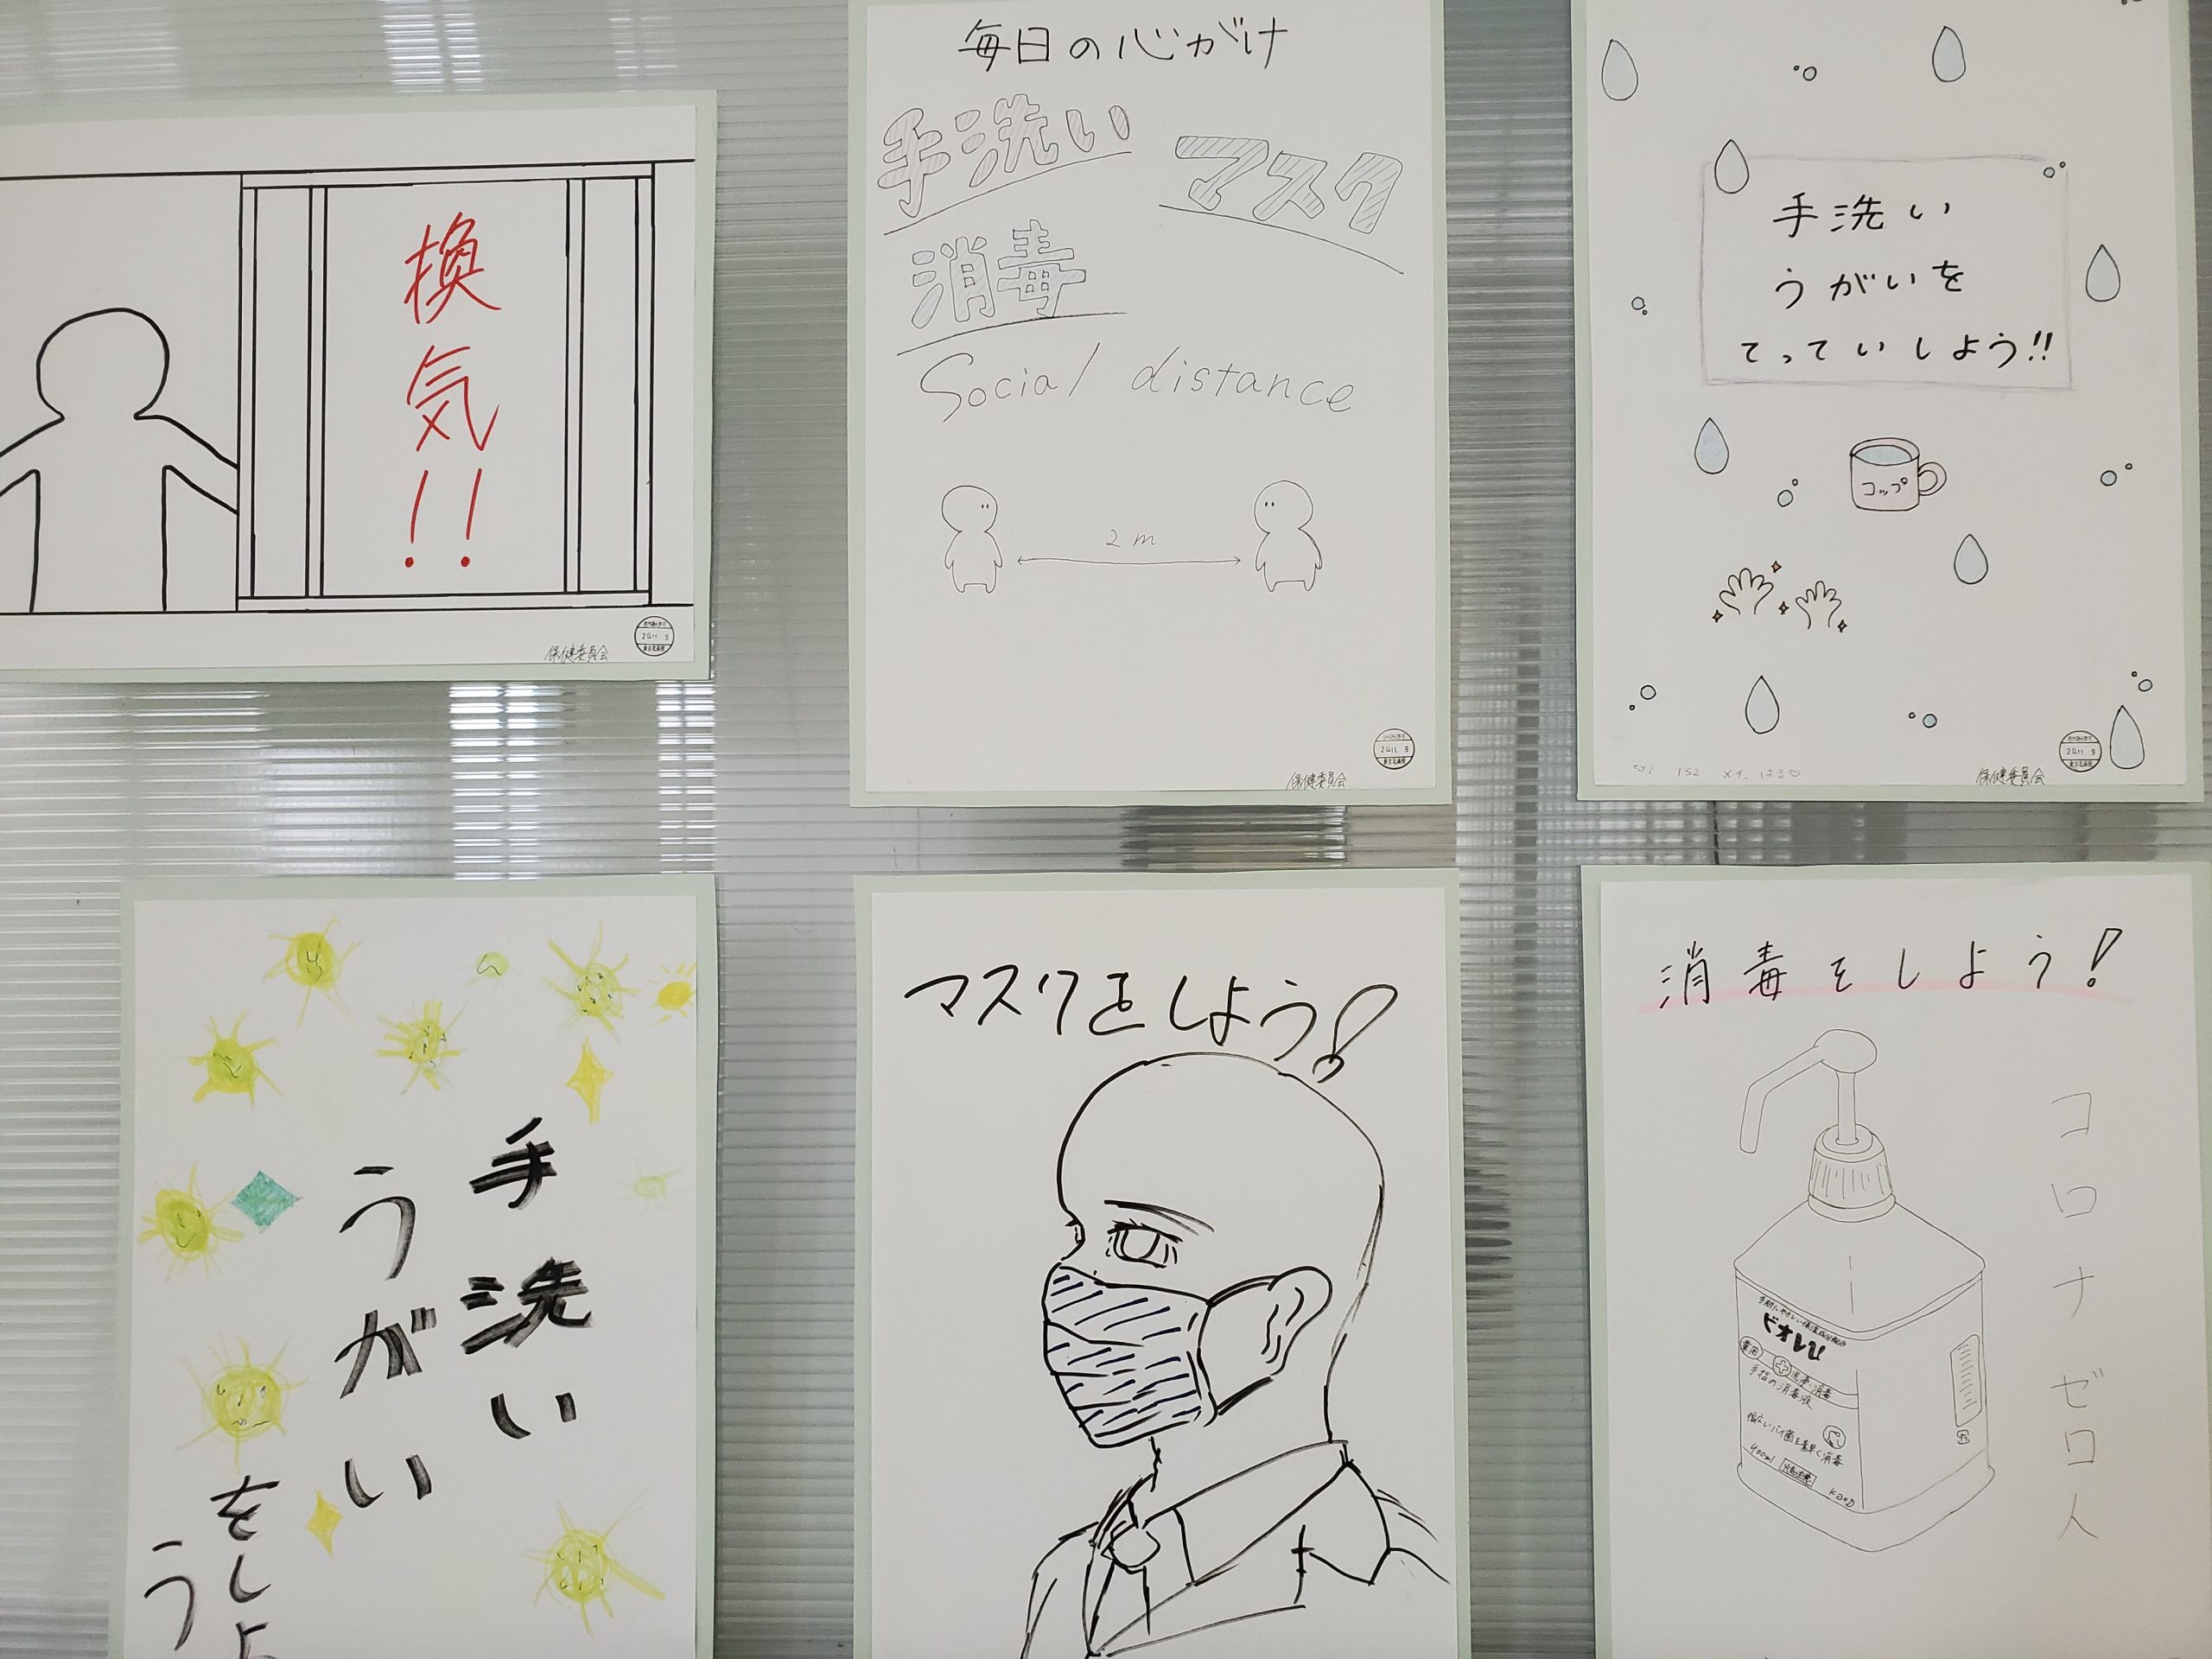 換気!!
保健委員会
毎日の心がけ
手洗い
マスク
消毒
Social distance
2m
保健委員会
手洗い
うがいを
てっていしよう!!
コップ
保健委員会
手洗い
うがい
をしよ
う
マスクをしよう!
消毒をしよう!
コロナゼロ人
ビオレu
手指の消毒液
400ml